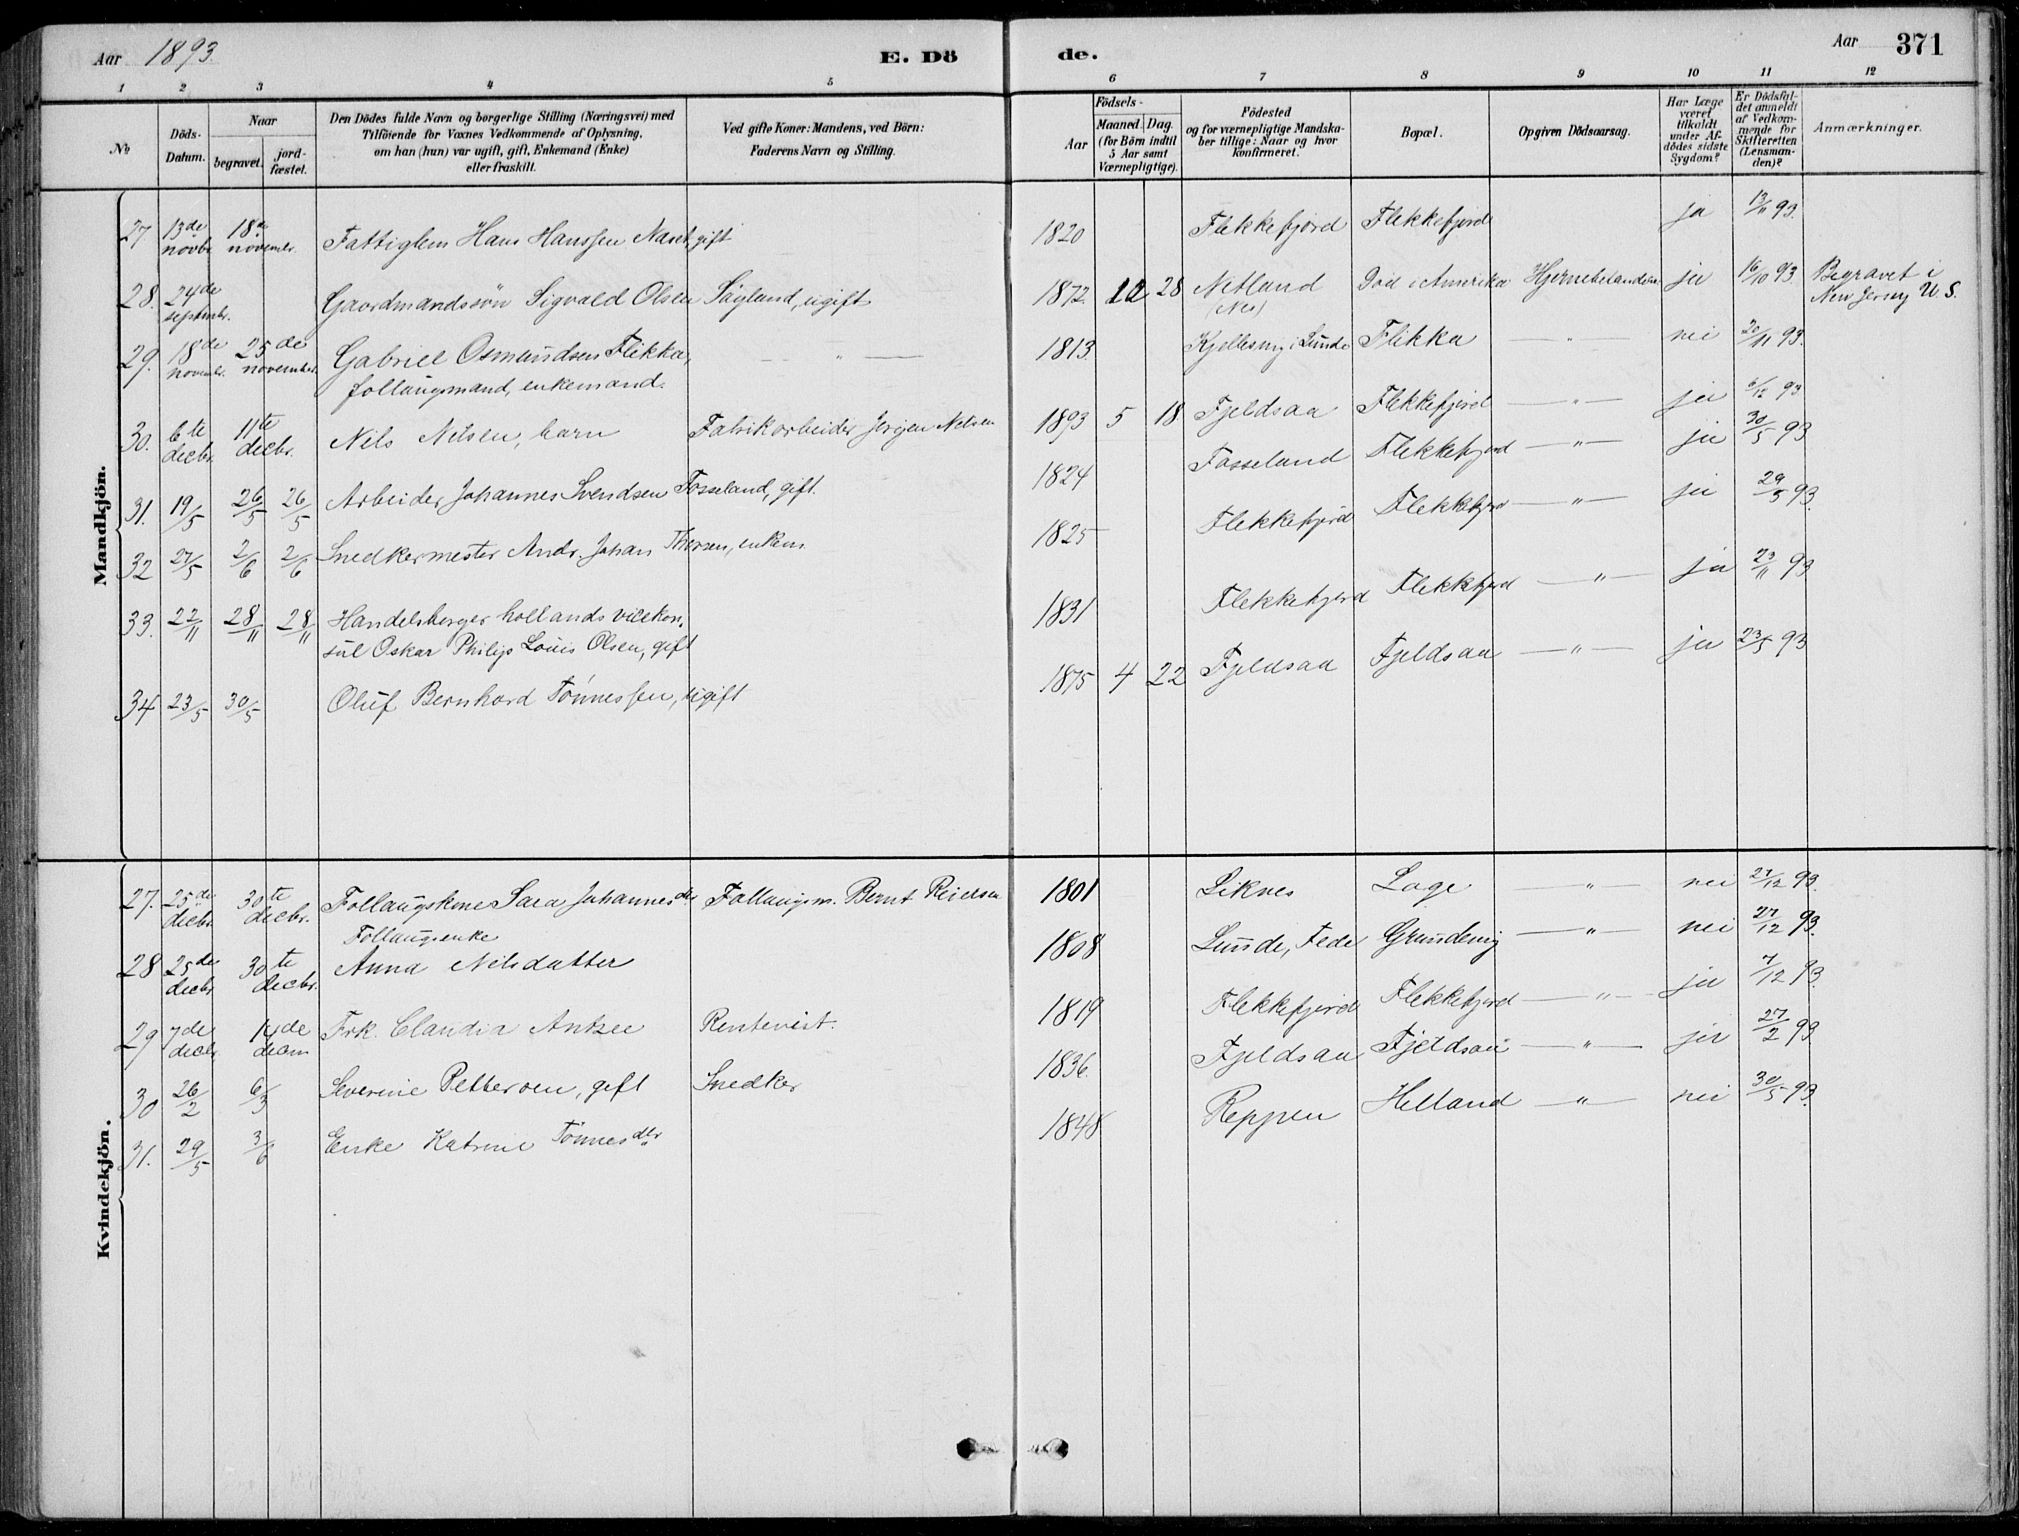 Aar 1893.
E. Dö
de.
Aar 371
1 2 3 4 5 6 7 8 9 10 11 12
№
Döds-Datum.
Naar
begravet.
jord-fæstet.
Den Dödes fulde Navn og borgerlige Stilling (Næringsvei) med
Tilföiende for Voxnes Vedkommende af Oplysning,
om han (hun) var ugift, gift, Enkemand (Enke)
eller fraskilt.
Ved gifte Koner: Mandens, ved Börn:
Faderens Navn og Stilling.
Födsels-
Aar
Maaned. Dag.
(for Börn indtil
5 Aar samt
Værnepligtige).
Födested
og for værnepligtige Mandska-
ber tillige: Naar og hvor
konfirmeret.
Bopæl.
Opgiven Dödsaarsag.
Har Læge
været
tilkaldt
under Af-
dödes sidste
Sygdom?
Er Dödsfal-
det anmeldt
af Vedkom-
mende for
Skifteretten
(Lensman-
den)?
Anmærkninger.
Mandkjön.
27 13de novbr. 18de novembr. Fattiglem Hans Hanssen gift 1820 Flekkefjord Flekkefjord ja 13/11 93.
28. 24de septembr. Gaardmandssön Sigvald Olsen Sägland, ugift 1872 12 28 Netland (Nes) Död i Amerika ja 16/10 93. Begravet i
New Jersey U. S.
29. 18de novembr. 25de november. Gabriel Osmundsen Flikka, — " — 1813 i Lunde Flikka — " — nei 20/11 93.
follaugsmand, enkemand.
30. 6te decbr. 11te decbr. Nils Nilsen, barn Fabrikarbeider Jörgen Nilsen 1893 5 18 Fjeldsaa Flekkefjord — " — ja 6/12 93
31. 19/5 26/5 26/5 Arbeider Johannes Svendsen Fosseland, gift. 1824 Fosseland Flekkefjord — " — ja 30/5 93
32 27/5 2/6 2/6 Snedkermester Andr. Johan enkem. 1825 Flekkefjord Flekkefjord — " — ja 29/5 93.
33. 22/11 28/11 28/11 Handelsborger hollands vicekon-
sul Oskar Philip Louis Olsen, gift 1831 Flekkefjord Flekkefjord — " — ja 23/11 93
34 23/5 30/5 Oluf Bernhard Tönnessen, ugift 1875 4 22 Fjeldsaa Fjeldsaa — " — ja 23/5 93
Kvindekjön.
27. 25de decbr. 30te decbr. Follaugskone Sara Johannesdtr Follaugsm. Bernt Reiersen 1801 Liknes Loge " — nei 27/12 93.
28 25de decbr. 30te decbr. Follaugsenke
Anna Nilsdatter 1808 Lunde, Fede Grundevig — " — nei 27/12 93.
29 7de decbr. 14de decm Frk. Claudia Rentenist. 1819 Flekkefjord Flekkefjord — " — ja 7/12 93.
30 26/2 6/3 Severine Pettersen, gift Snedker 1836. Fjeldsaa Fjeldsaa — " — ja 27/2 93
31. 29/5 3/6 Enke Katrine Tönnesdtr 1848 Reppen Helland — " — nei 30/5 93.